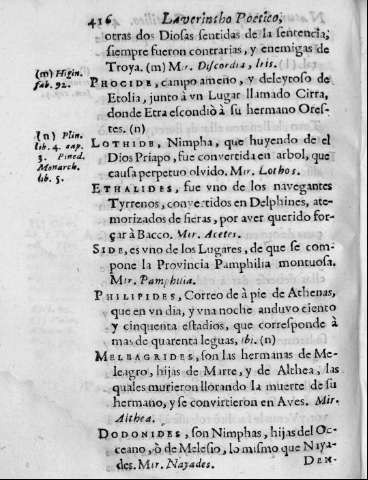 416 Laverintho Poetico,
otras dos Diosas sentidas de la sentencia,
siempre fueron contrarias, y enemigas de
Troya. (m) Mir. Discordia, Iris.
(m) Higin.
fab. 92.
PHOCIDE, campo ameno, y deleytoso de
Etolia, junto à vn Lugar llamado Cirra,
donde Etra escondiò à su hermano Ores-
tes. (n)
(n) Plin.
lib. 4. cap.
3. Pined.
Monarch.
lib. 5.
LOTHIDE, Nimpha, que huyendo de el
Dios Priapo, fue convertida en arbol, que
causa perpetuo olvido. Mir. Lothos.
ETHALIDES, fue vno de los navegantes
Tyrrenos, convertidos en Delphines, ate-
morizados de fieras, por aver querido for-
çar à Bacco. Mir. Acetes.
SIDE, es vno de los Lugares, de que se com-
pone la Provincia Pamphilia montuosa.
Mir. Pamphilia.
PHILIPIDES, Correo de à pie de Athenas,
que en vn dia, y vna noche anduvo ciento
y cinquenta estadios, que corresponde à
mas de quarenta leguas, ibi. (n)
MELEAGRIDES, son las hermanas de Me-
leagro, hijas de Marte, y de Althea, las
quales murieron llorando la muerte de su
hermano, y se convirtieron en Aves. Mir.
Althea.
DODONIDES, son Nimphas, hijas del Oc-
ceano, ò de Melesio, lo mismo que Naya-
des. Mir. Nayades. DEN-